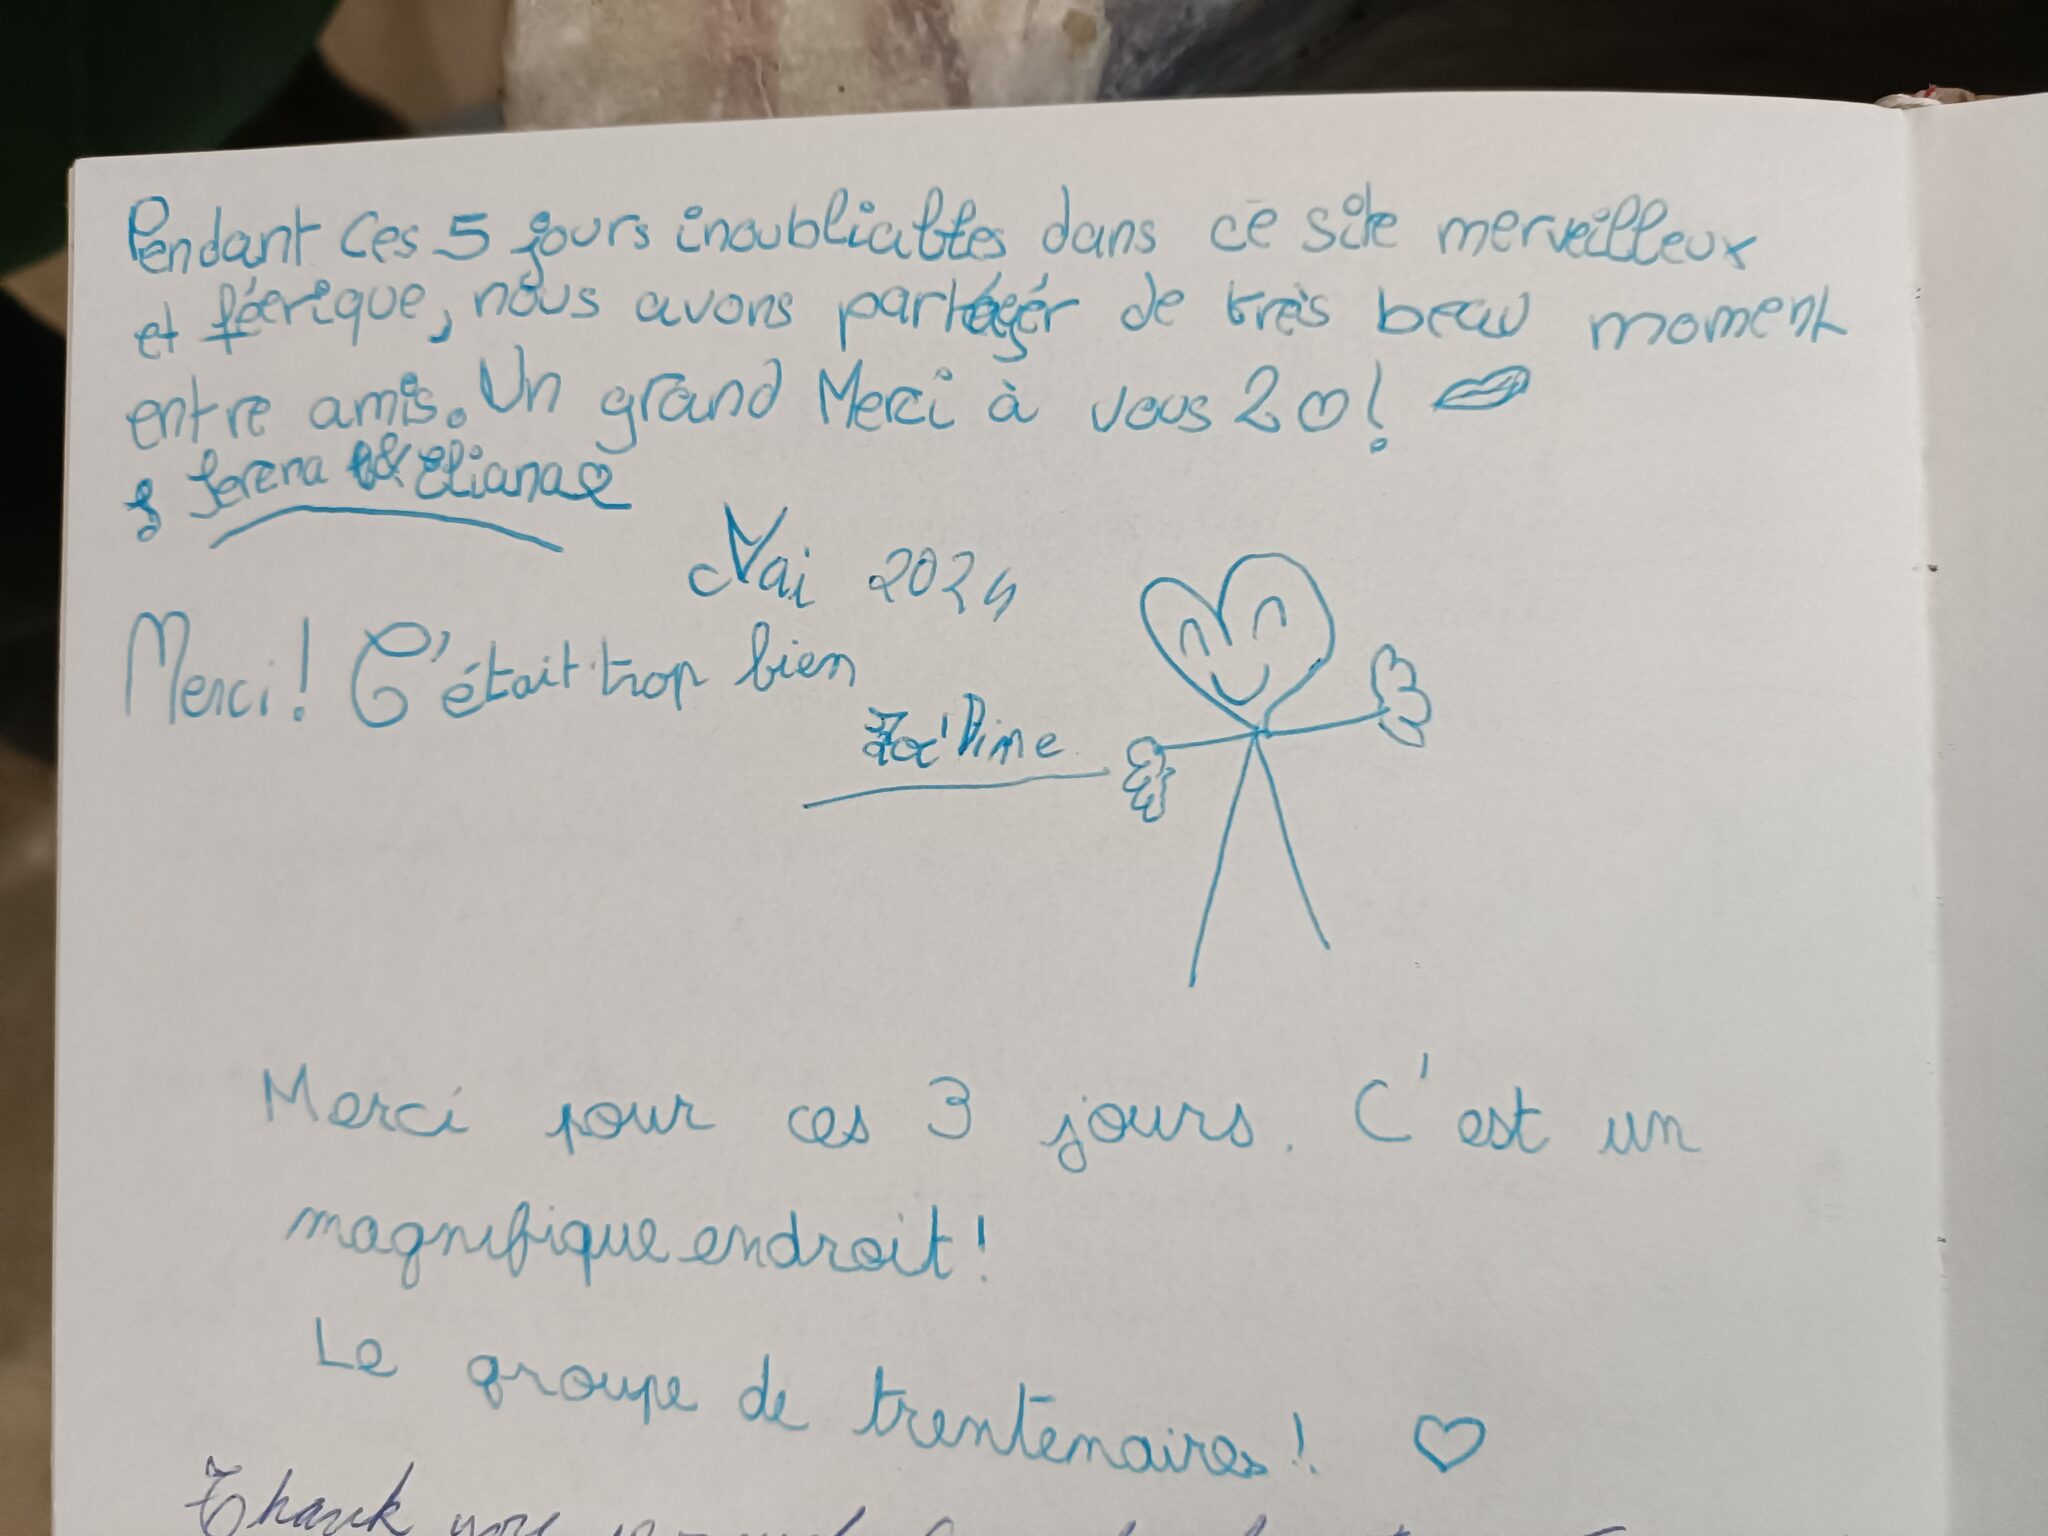 Pendant ces 5 jours inoubliables dans ce site merveilleux
et féerique, nous avons partager de très beau moment
entre amis. Un grand Merci à vous 2 !
Serena & Eliana
Mai 2024
Merci ! C'était trop bien
Merci pour ces 3 jours. C'est un
magnifique endroit !
Le groupe de trentenaires !
Thank you